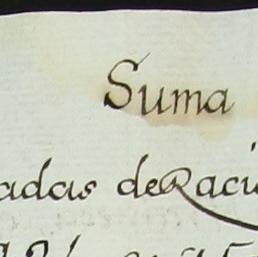 Suma
adas de Raci